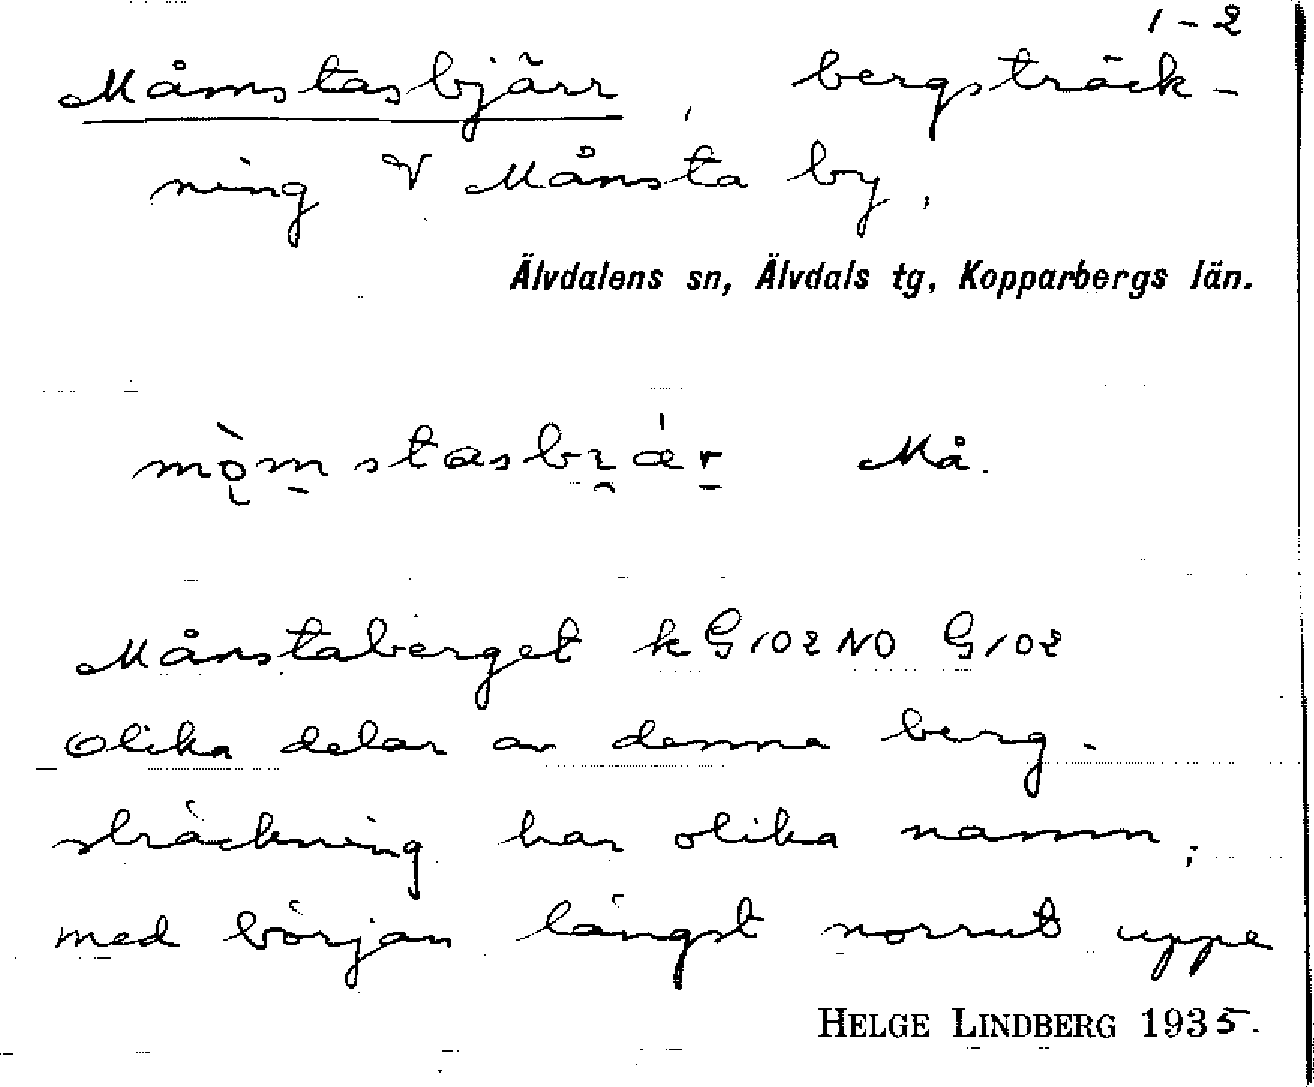 1-2
Måmstasbjärr, bergsträck-
ning V Månsta by.
Älvdalens sn, Älvdals tg, Kopparbergs län.
Må.
Månstaberget k G102NO G102
Olika delar av denna berg-
sträckning har olika namn,
med början längst norrut uppe
HELGE LINDBERG 1935.